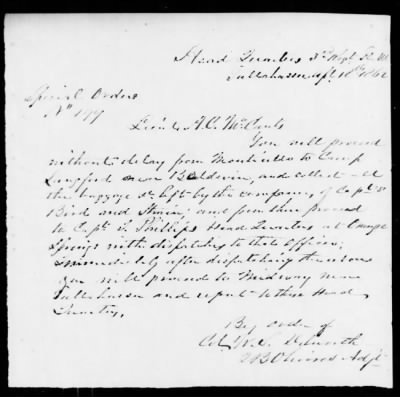 Head Quarters 3rd Regt Fl. Vol
Tallahassee Sept 18th 1862
Special Orders
No 177
Lieut A.C. McCants
You will proceed
without delay from Monticello to Camp
Langford near Baldwin, and collect all
the baggage &c left by the companies of Capts
Bird and and from there proceed
to Capt. Phillips Head Quarters at Orange
Springs with dispatches to that Officer,
immediately after dispatching the
you will proceed to Midway near
Tallahassee and report to these Head
Quarters,
By order of
Col W.S. Dilworth
Adjt